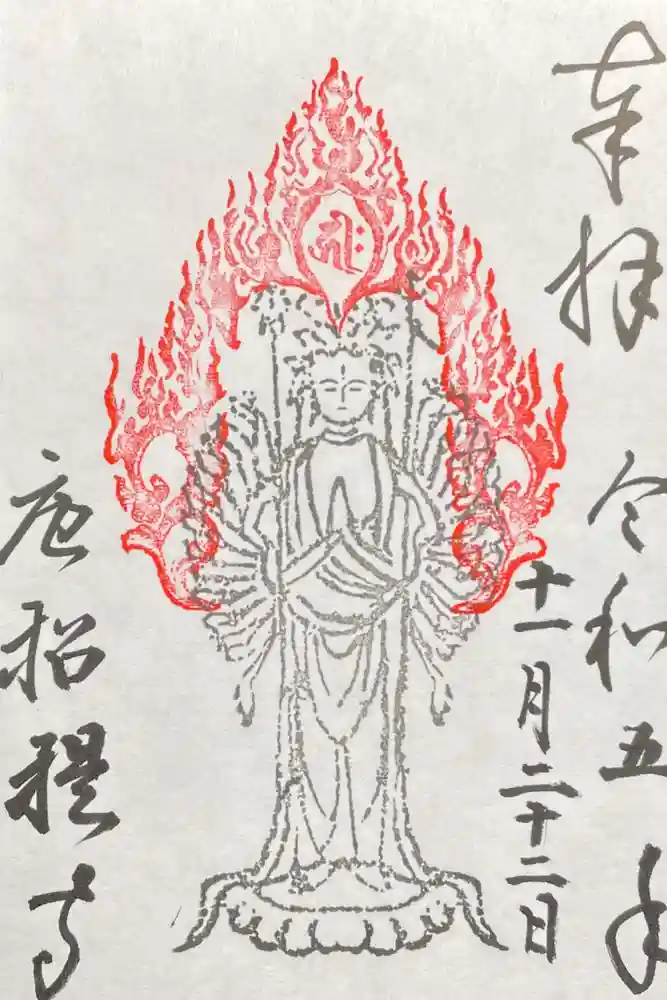 奉拝
令和五年
十一月二十二日
𑖮𑖿𑖨𑖱𑖾
唐招提寺